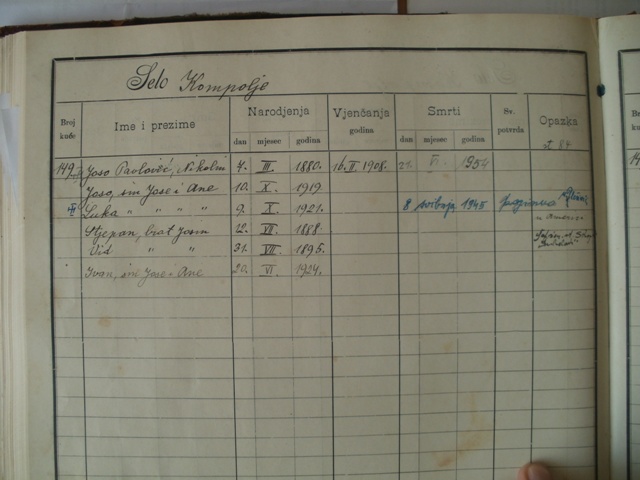 Selo Kompolje
Broj kuće Ime i prezime Narodjenja Vjenčanja Smrti Sv. potvrda Opazka
dan mjesec godina godina dan mjesec godina
st 87
149. Joso Pavlović, Nikolin 7. III. 1880. 16. II. 1908. 21. VI. 1954
Joso, sin Jose i Ane 10. X. 1919.
Luka " " " " 9. X. 1921. 8 svibnja 1945
Stjepan, brat Josin 22. VII. 1888. u Americi
Vid " " 31. VII. 1895.
Ivan, sin Jose i Ane 20. VI. 1924.